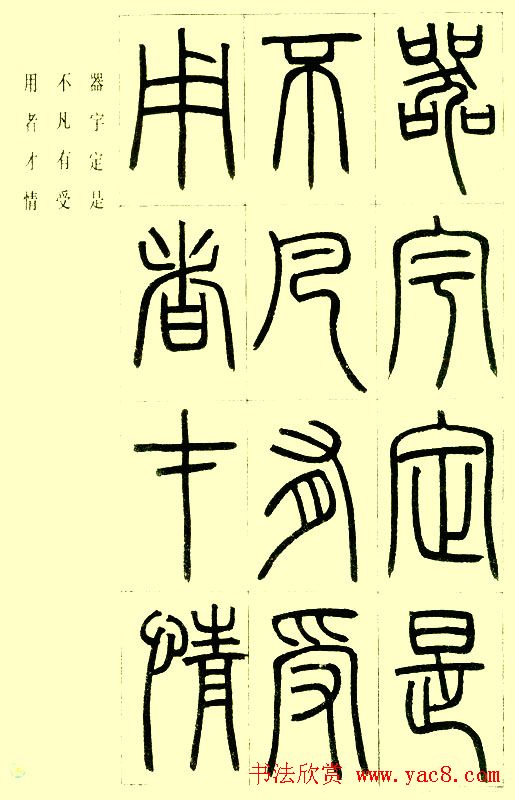 器宇定是
不凡有受
用者才情
器宇定是
不凡有受
用者才情
书法欣赏 www.yac8.com